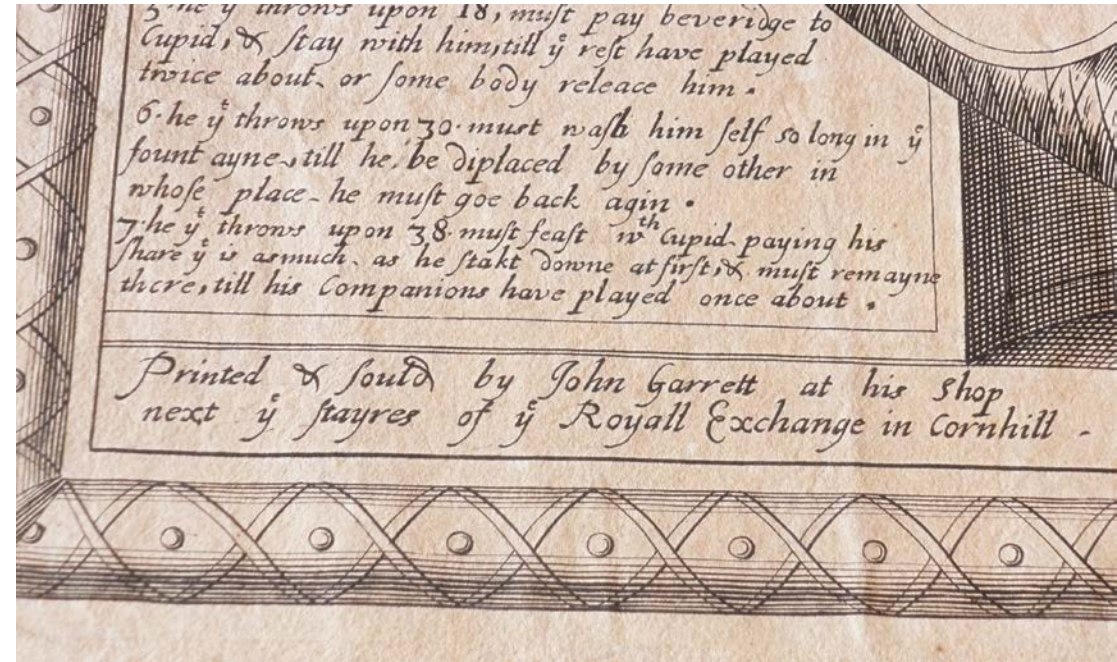 5. he yͭ throws upon 18, muſt pay beveridge to
Cupid, & ſtay with him, till yͤ reſt have played
twice about, or ſome body releace him.
6. he yͭ throws upon 30. must waſh him ſelf so long in yͤ
fount ayne, till he, be diplaced by ſome other in
whoſe place he muſt goe back agin.
7. he yͭ throws upon 38. muſt feaſt wᵗʰ Cupid paying his
ſhare yͭ is asmuch as he ſtakt downe at firſt, & muſt remayne
there, till his Companions have played once about.
Printed & ſould by John Garrett at his Shop
next yͤ ſtayres of yͤ Royall Exchange in Cornhill